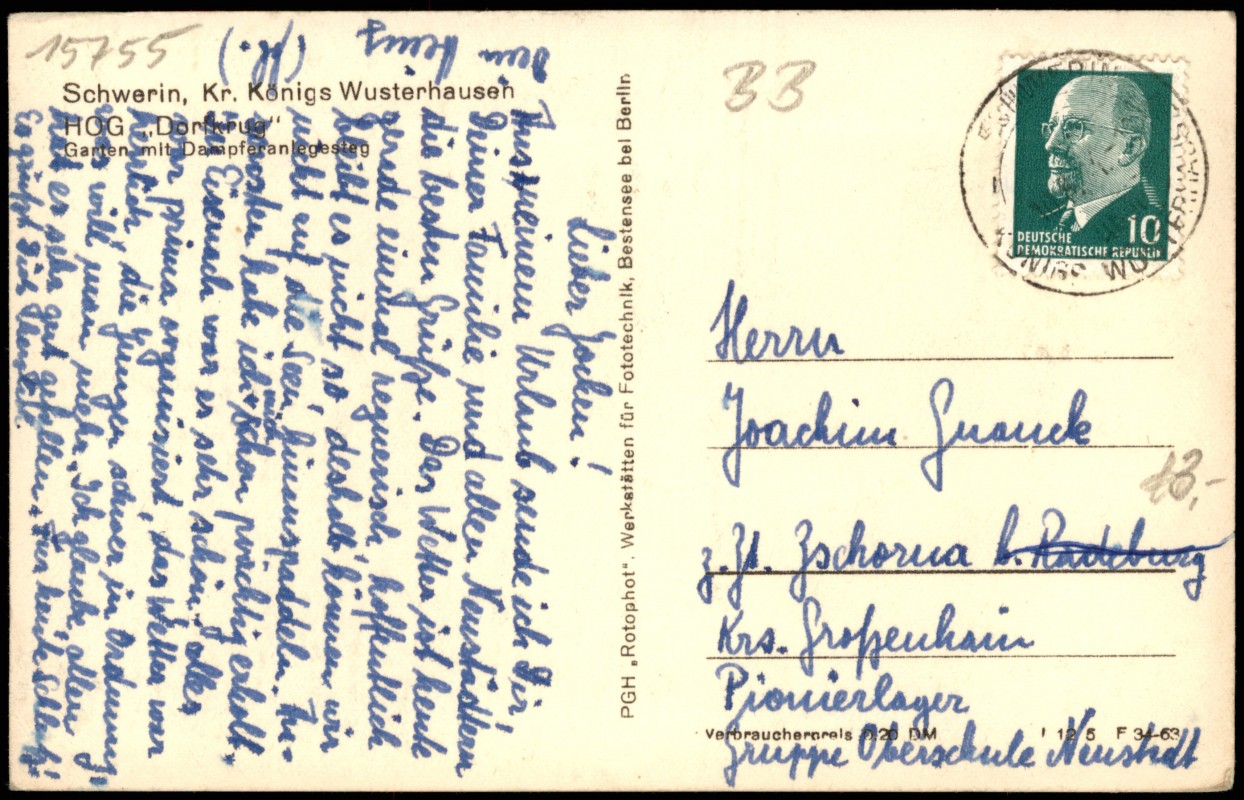 15755
Schwerin, Kr. Königs Wusterhausen
HOG „Dorfkrug"
Garten mit Dampferanlegesteg
Lieber Jochen!
Aus meinem Urlaub sende ich Dir,
Deiner Familie und allen Neustädtern
die besten Grüße. Das Wetter ist heute
gerade einmal regnerisch, hoffentlich
bleibt es nicht so, deshalb können wir
nicht auf die Seen hinauspaddeln. An-
sonsten habe ich mich schon prächtig erholt.
In Eisenach war es sehr schön, alles
war prima organisiert, das Wetter war
herrlich, die Jungen schwer in Ordnung,
was will man mehr. Ich glaube allen
hat es sehr gut gefallen. Für heute Schluß!
Es grüßt Dich
Dein Heinz
PGH „Rotophot", Werkstätten für Fototechnik, Bestensee bei Berlin
BB
SCHWERIN
KÖNIGS WUSTERHAUSEN
10
DEUTSCHE
DEMOKRATISCHE REPUBLIK
Herrn
Joachim Gnauck
13,-
z. Zt. Zschorna b. Radeburg
Krs. Großenhain
Pionierlager
Verbraucherpreis 0.20 DM I 12 5 F 34-63
Gruppe Oberschule Neustadt